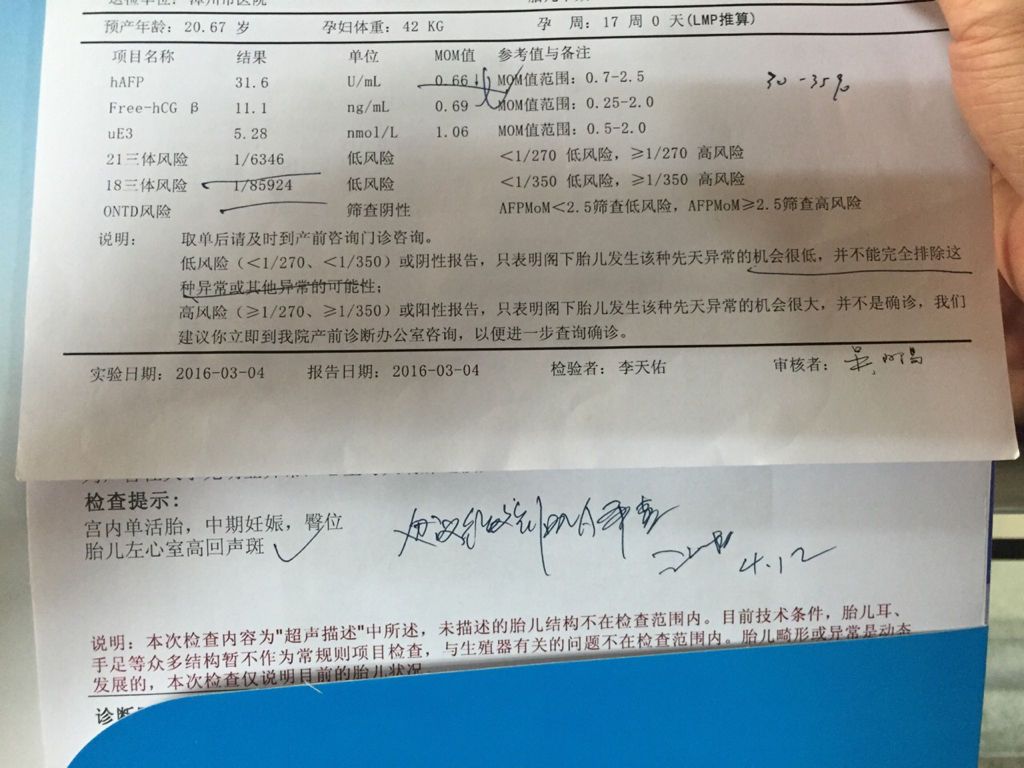 预产年龄: 20.67 岁 孕妇体重: 42 KG 孕 周: 17 周 0 天(LMP推算)
项目名称 结果 单位 MOM值 参考值与备注
hAFP 31.6 U/mL 0.66 ↓ MOM值范围: 0.7-2.5 30-35%
Free-hCG β 11.1 ng/mL 0.69 MOM值范围: 0.25-2.0
uE3 5.28 nmol/L 1.06 MOM值范围: 0.5-2.0
21三体风险 1/6346 低风险 <1/270 低风险, ≥1/270 高风险
18三体风险 1/85924 低风险 <1/350 低风险, ≥1/350 高风险
ONTD风险 筛查阴性 AFPMoM<2.5筛查低风险, AFPMoM≥2.5筛查高风险
说明: 取单后请及时到产前咨询门诊咨询。
低风险(<1/270、<1/350)或阴性报告, 只表明阁下胎儿发生该种先天异常的机会很低, 并不能完全排除这
种异常或其他异常的可能性;
高风险(≥1/270、≥1/350)或阳性报告, 只表明阁下胎儿发生该种先天异常的机会很大, 并不是确诊, 我们
建议你立即到我院产前诊断办公室咨询, 以便进一步查询确诊。
实验日期: 2016-03-04 报告日期: 2016-03-04 检验者: 李天佑 审核者:
检查提示:
宫内单活胎, 中期妊娠, 臀位
胎儿左心室高回声斑
4.12
说明: 本次检查内容为"超声描述"中所述, 未描述的胎儿结构不在检查范围内。目前技术条件, 胎儿耳、
手足等众多结构暂不作为常规则项目检查, 与生殖器有关的问题不在检查范围内。胎儿畸形或异常是动态
发展的, 本次检查仅说明目前的胎儿状况。